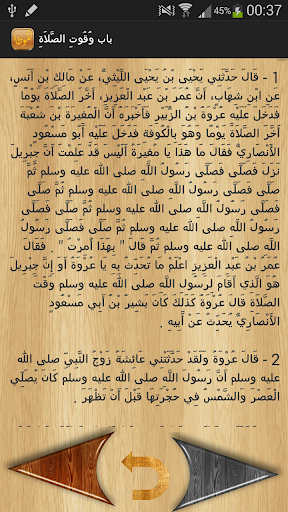 45% 00:37
موطأ باب وُقُوتِ الصَّلَاةِ
1 - قَالَ حَدَّثَنِي يَحْيَى بْنُ يَحْيَى اللَّيْثِيُّ، عَنْ مَالِكِ بْنِ أَنَسٍ،
عَنِ ابْنِ شِهَابٍ، أَنَّ عُمَرَ بْنَ عَبْدِ الْعَزِيزِ، أَخَّرَ الصَّلَاةَ يَوْمًا
فَدَخَلَ عَلَيْهِ عُرْوَةُ بْنُ الزُّبَيْرِ فَأَخْبَرَهُ أَنَّ الْمُغِيرَةَ بْنَ شُعْبَةَ
أَخَّرَ الصَّلَاةَ يَوْمًا وَهُوَ بِالْكُوفَةِ فَدَخَلَ عَلَيْهِ أَبُو مَسْعُودٍ
الْأَنْصَارِيُّ فَقَالَ مَا هَذَا يَا مُغِيرَةُ أَلَيْسَ قَدْ عَلِمْتَ أَنَّ جِبْرِيلَ
نَزَلَ فَصَلَّى فَصَلَّى رَسُولُ اللَّهِ صلى الله عليه وسلم ثُمَّ صَلَّى
فَصَلَّى رَسُولُ اللَّهِ صلى الله عليه وسلم ثُمَّ صَلَّى فَصَلَّى
رَسُولُ اللَّهِ صلى الله عليه وسلم ثُمَّ صَلَّى فَصَلَّى رَسُولُ
اللَّهِ صلى الله عليه وسلم ثُمَّ صَلَّى فَصَلَّى رَسُولُ اللَّهِ
صلى الله عليه وسلم ثُمَّ قَالَ " بِهَذَا أُمِرْتُ " . فَقَالَ
عُمَرُ بْنُ عَبْدِ الْعَزِيزِ اعْلَمْ مَا تُحَدِّثُ بِهِ يَا عُرْوَةُ أَوَ إِنَّ جِبْرِيلَ
هُوَ الَّذِي أَقَامَ لِرَسُولِ اللَّهِ صلى الله عليه وسلم وَقْتَ
الصَّلَاةِ قَالَ عُرْوَةُ كَذَلِكَ كَانَ بَشِيرُ بْنُ أَبِي مَسْعُودٍ
الْأَنْصَارِيُّ يُحَدِّثُ عَنْ أَبِيهِ .
2 - قَالَ عُرْوَةُ وَلَقَدْ حَدَّثَتْنِي عَائِشَةُ زَوْجُ النَّبِيِّ صلى الله
عليه وسلم أَنَّ رَسُولَ اللَّهِ صلى الله عليه وسلم كَانَ يُصَلِّي
الْعَصْرَ وَالشَّمْسُ فِي حُجْرَتِهَا قَبْلَ أَنْ تَظْهَرَ .